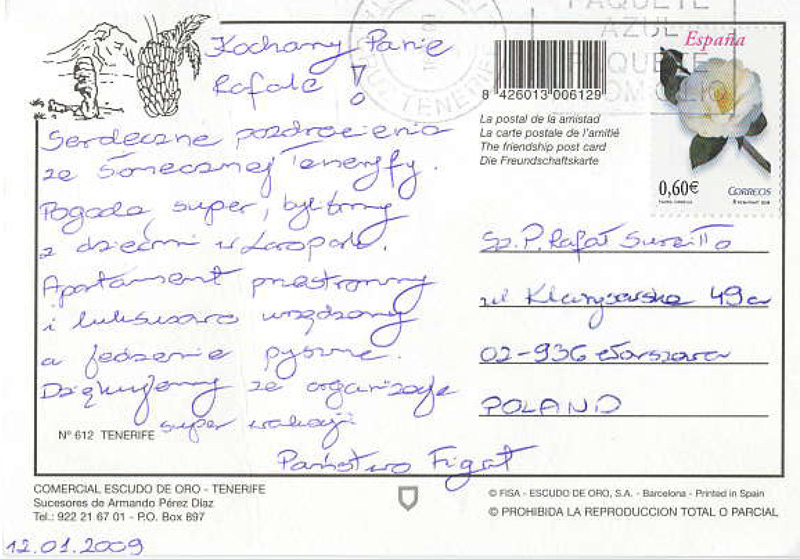 Kochany Panie
Rafale!
Serdeczne pozdrowienia
ze słonecznej Teneryfy.
Pogoda super, byliśmy
z dziećmi w Loropark.
Apartament przestronny
i luksusowo urządzony
a jedzenie pyszne.
Dziękujemy za organizację
super wakacji
Państwo Figat
Nº 612 TENERIFE
COMERCIAL ESCUDO DE ORO - TENERIFE
Sucesores de Armando Pérez Diaz
Tel.: 922 21 67 01 - P.O. Box 897
12.01.2009
8 426013 006129
La postal de la amistad
La carte postale de l'amitié
The friendship post card
Die Freundschaftskarte
TENERIFE
PAQUETE
AZUL
PAQUETE
España
0,60€
CORREOS
Sz. P. Rafał
ul 49a
02-936 Warszawa
POLAND
© FISA - ESCUDO DE ORO, S.A. - Barcelona - Printed in Spain
© PROHIBIDA LA REPRODUCCION TOTAL O PARCIAL